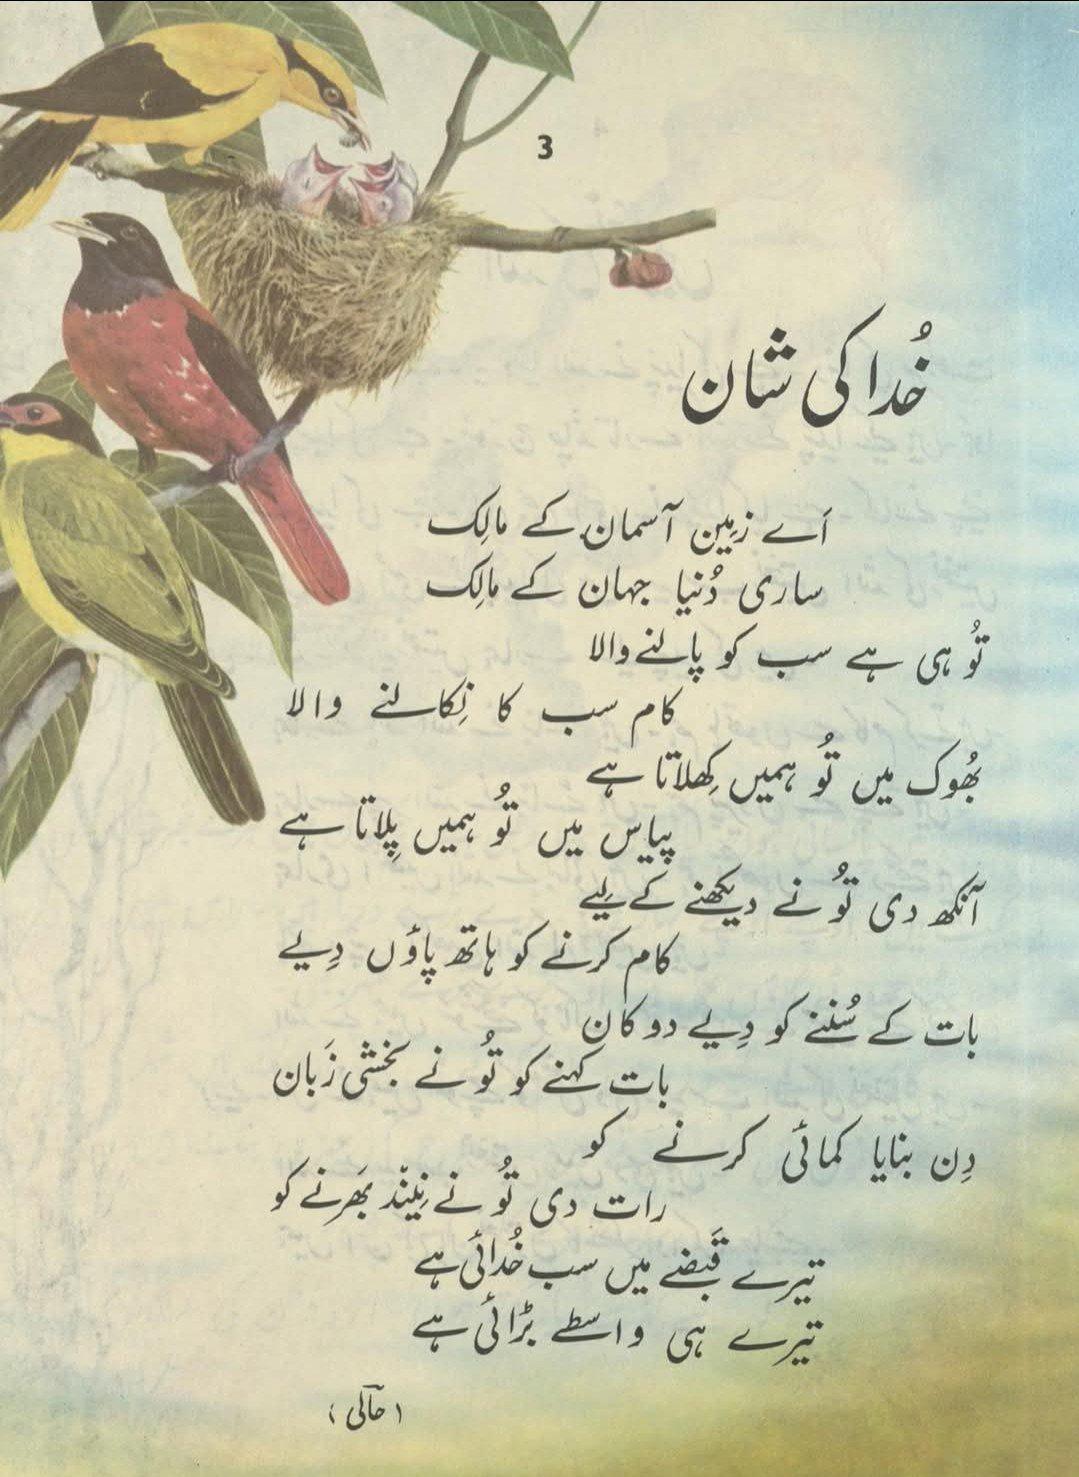 3
خُدا کی شان
اَے زمِین آسمان کے مالِک
ساری دُنیا جہان کے مالِک
تُو ہی ہے سب کو پالنے والا
کام سب کا نِکالنے والا
بھُوک میں تُو ہمیں کِھلاتا ہے
پیاس میں تُو ہمیں پِلاتا ہے
آنکھ دی تُو نے دیکھنے کے لِیے
کام کرنے کو ہاتھ پاؤں دِیے
بات کے سُننے کو دِیے دو کان
بات کہنے کو تُو نے بخشی زَبان
دِن بنایا کمائی کرنے کو
رات دی تُو نے نِیْند بَھرنے کو
تیرے قَبضے میں سب خُدائی ہے
تیرے ہی واسطے بڑائی ہے
(حالی)